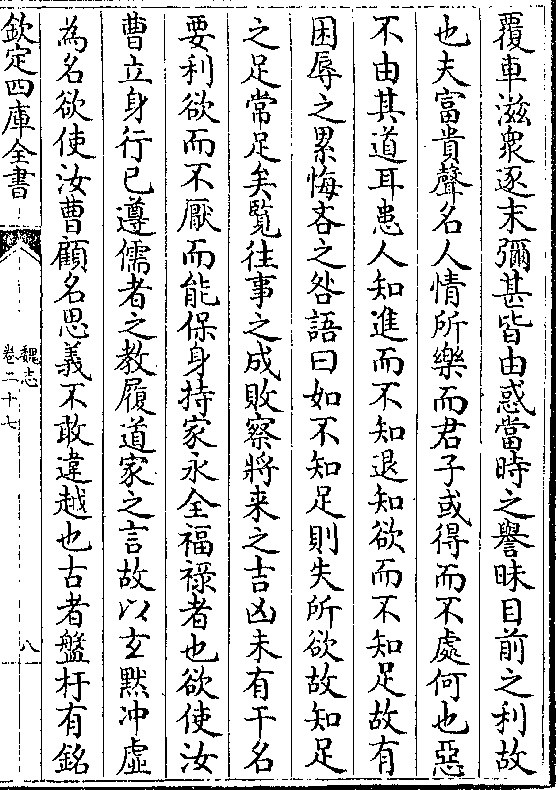 覆車滋衆逐末彌甚皆由惑當時之譽昧目前之利故
也夫富貴聲名人情所樂而君子或得而不處何也惡
不由其道耳患人知進而不知退知欲而不知足故有
困辱之累悔吝之咎語曰如不知足則失所欲故知足
之足常足矣覽往事之成敗察將来之吉凶未有干名
要利欲而不厭而能保身持家永全福祿者也欲使汝
曹立身行已遵儒者之教履道家之言故以玄黙冲虛
為名欲使汝曹顧名思義不敢違越也古者盤杅有銘
欽定四庫全書
魏志
卷二十七
八